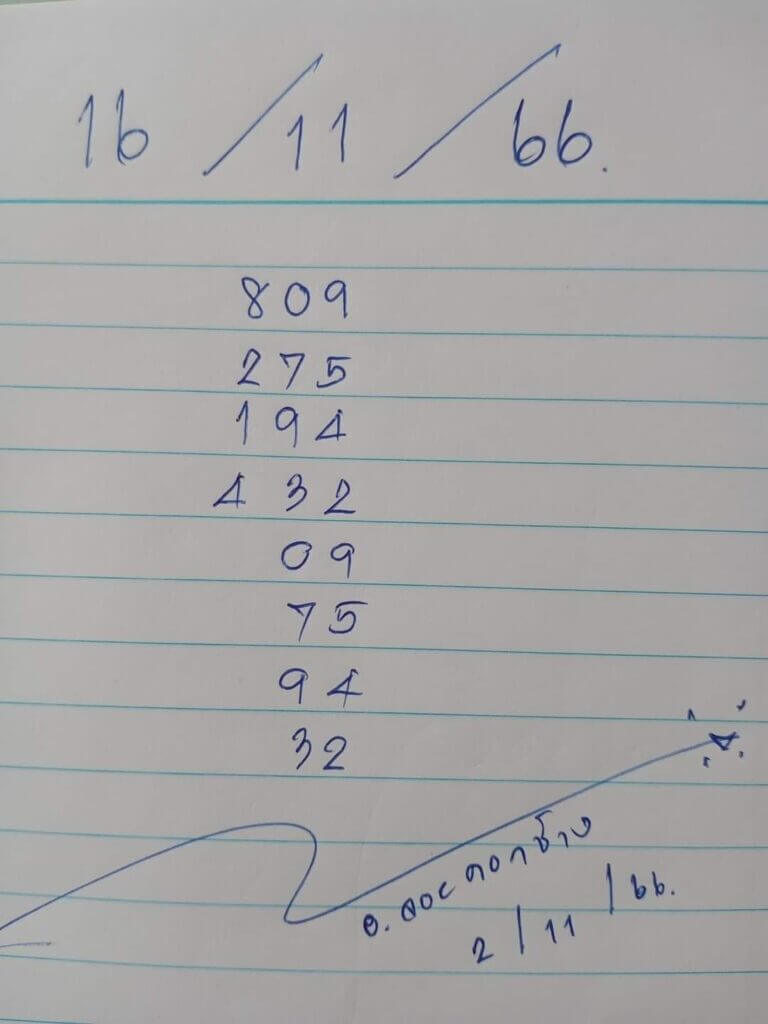 16/11/66.
809
275
194
432
09
75
94
32
อ. ลอย คอกช้าง
2/11/66.